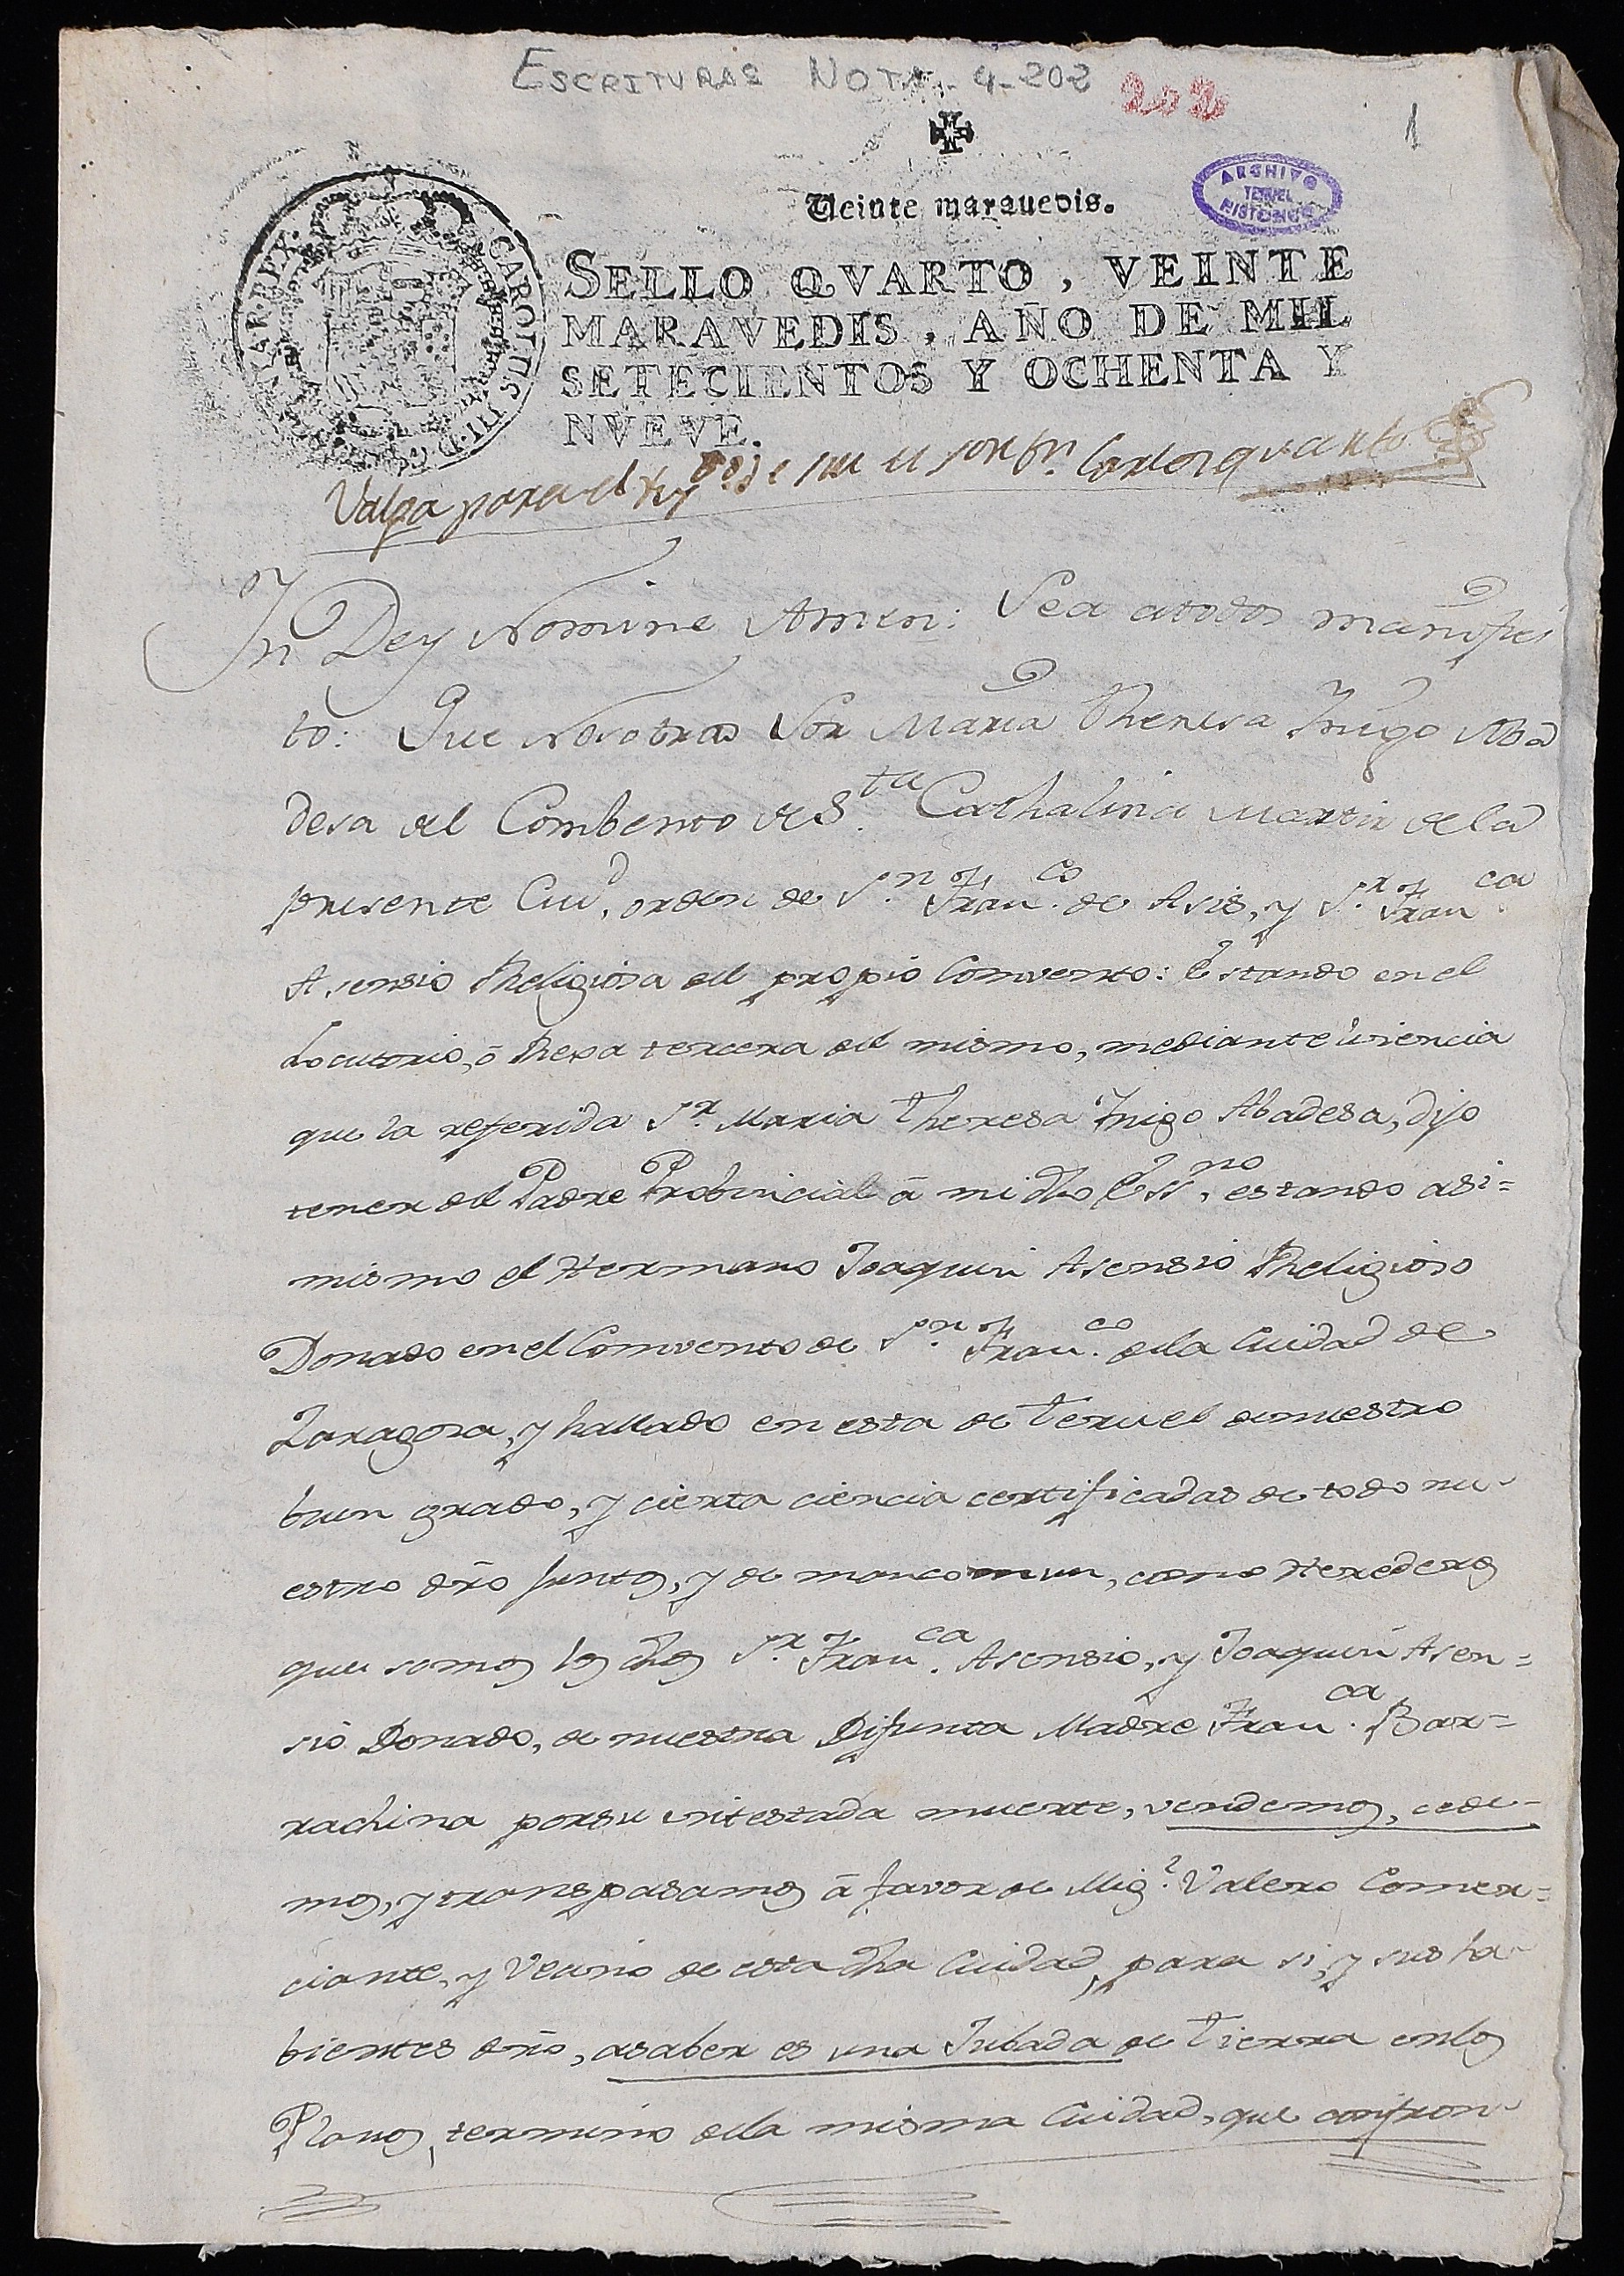 ESCRITURAS NOTA. 4-202
202
1
ARCHIVO
TERUEL
HISTORICO
Veinte marauedis.
CAROLUS III D G
SELLO QVARTO, VEINTE
MARAVEDIS, AÑO DE MIL
SETECIENTOS Y OCHENTA Y
NVEVE.
Valga para el Rey
In Dey Nomine Amen: Sea atodos manifies
to: Que Nosotras Sor Maria Theresa Iñigo Aba
desa del Combento de S.ta Cathalina Martir de la
presente Ciud, orden de S.n Fran.co de Asis, y S.r Fran.ca
Asensio Religiosa del propio Convento: Estando en el
Locutorio, ó Rexa tercera del mismo, mediante lisiencia
que la referida S.r Maria Theresa Iñigo Abadesa, dijo
tener del Padre Probincial â mi dho Ess.no, estando asi=
mismo el Hermano Joaquin Asensio Religioso
Donado en el Convento de S.n Fran.co dela Ciudad de
Zaragoza, y hallado en esta de Teruel de nuestro
buen grado, y cierta ciencia certificadas de todo nu-
estro dro juntos, y de mancomun, como Herederos
que somos los dhos S.r Fran.ca Asensio, y Joaquin Asen=
sio Donado, de nuestra Difunta Madre Fran.ca Bar=
rachina porsu intestada muerte, vendemos, cede-
mos, y transpasamos â favor de Mig.l Valero Comer=
ciante, y Vecino de esta dha Ciudad, para si, y sus ha-
bientes dro, asaber es una Jubada de Tierra enlos
Planos, termino dela misma Ciudad, que confron-